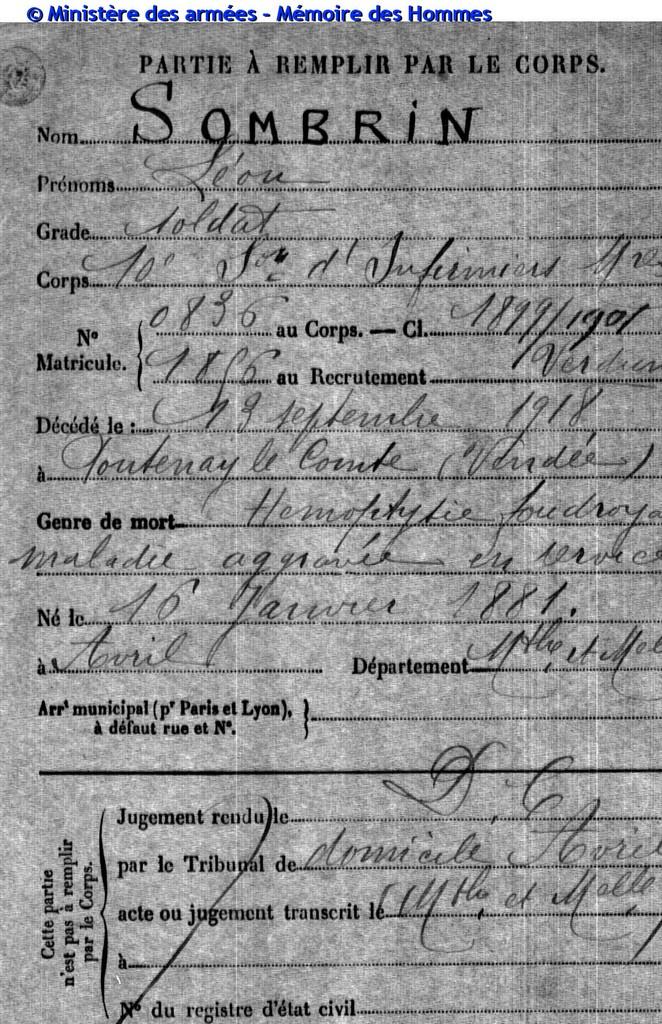 © Ministère des armées - Mémoire des Hommes
PARTIE À REMPLIR PAR LE CORPS.
Nom SOMBRIN
Prénoms Léon
Grade soldat
Corps 10e Son d'Infirmiers Mres
No Matricule. { 0836 au Corps. — Cl. 1899/1901
1856 au Recrutement Verdun
Décédé le : 13 septembre 1918
à Fontenay le Comte (Vendée)
Genre de mort Hemoptysie foudroya
maladie aggravée en service
Né le 16 Janvier 1881.
à Avril Département Mthe et Mol
Arrt municipal (pr Paris et Lyon), }
à défaut rue et No.
D. C.
Cette partie n'est pas à remplir par le Corps.
Jugement rendu le
par le Tribunal de domicile Avril
acte ou jugement transcrit le (Mthe et Molle
à
No du registre d'état civil